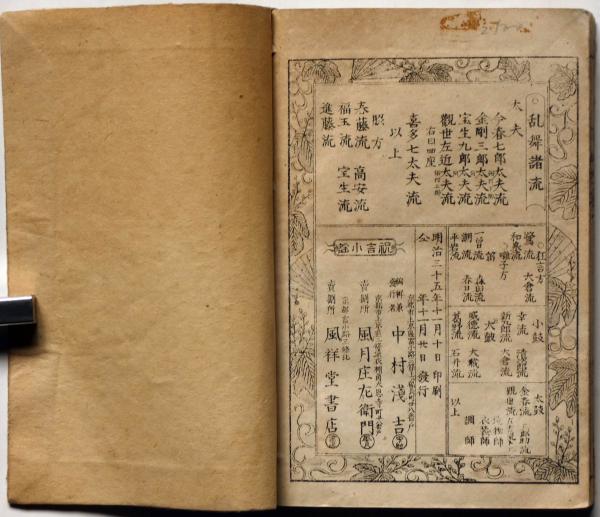 乱舞諸流
太夫
今春七郎太夫流
金剛三郎太夫流
宝生九郎太夫流
観世左近太夫流
右曰四座
喜多七太夫流
以上
脇方
春藤流 高安流
福王流 宝生流
進藤流
狂言方
鷺流 大倉流
和泉流
囃子方
笛
一曽流 森田流
調流 春日流
平岩流
小鼓
幸流 清次郎流
新九郎流 大倉流
大鼓
威徳流 大蔵流
葛野流 石井流
太鼓
金春流
観世流
衣装師
調師
以上
祝言小謡
明治三十五年十一月十日印刷
仝 年十一月廿日發行
編輯兼發行者 中村淺吉
賣捌所 風月庄左衛門
賣捌所 風祥堂書店